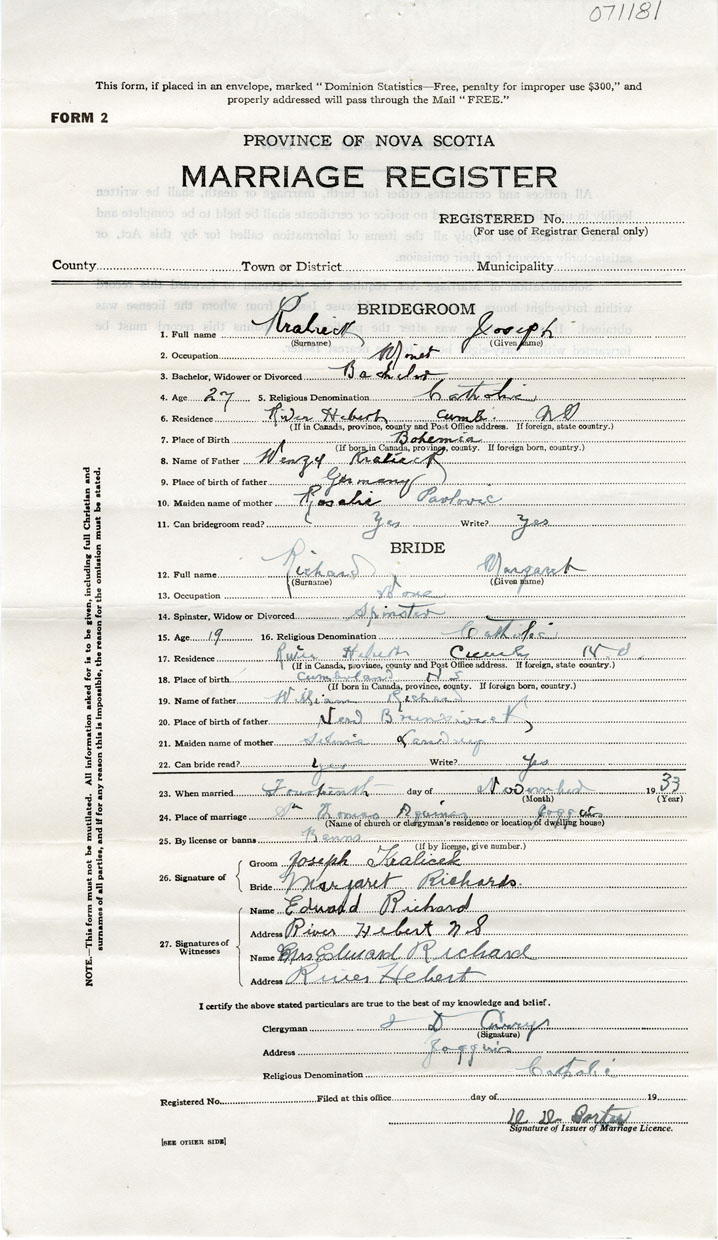 071181
This form, if placed in an envelope, marked "Dominion Statistics—Free, penalty for improper use $300," and
properly addressed will pass through the Mail "FREE."
FORM 2
PROVINCE OF NOVA SCOTIA
MARRIAGE REGISTER
REGISTERED No.
(For use of Registrar General only)
County Town or District Municipality
BRIDEGROOM
1. Full name Kralicek Joseph
(Surname) (Given name)
2. Occupation Miner
3. Bachelor, Widower or Divorced Bachelor
4. Age 27 5. Religious Denomination Catholic
6. Residence River Hebert Cumb. NS
(If in Canada, province, county and Post Office address. If foreign, state country.)
7. Place of Birth Bohemia
(If born in Canada, province, county. If foreign born, country.)
8. Name of Father Wenzel Kralicek
9. Place of birth of father Germany
10. Maiden name of mother Rosalie Pavlovic
11. Can bridegroom read? Yes Write? Yes
BRIDE
12. Full name Richard Margaret
(Surname) (Given name)
13. Occupation None
14. Spinster, Widow or Divorced Spinster
15. Age 19 16. Religious Denomination Catholic
17. Residence River Hebert Cumb N.S.
(If in Canada, province, county and Post Office address. If foreign, state country.)
18. Place of birth Cumberland N S
(If born in Canada, province, county. If foreign born, country.)
19. Name of father William Richard
20. Place of birth of father New Brunswick
21. Maiden name of mother Landry
22. Can bride read? Yes Write? Yes
23. When married Fourteenth day of November 1933
(Month) (Year)
24. Place of marriage St. Thomas Aquinas Joggins
(Name of church or clergyman's residence or location of dwelling house)
25. By license or banns Banns
(If by license, give number.)
26. Signature of
Groom Joseph Kralicek
Bride Margaret Richards.
27. Signatures of Witnesses
Name Edward Richard
Address River Hebert N S
Name Mrs Edward Richard
Address River Hebert
I certify the above stated particulars are true to the best of my knowledge and belief.
Clergyman D
(Signature)
Address Joggins
Religious Denomination Catholic
Registered No. Filed at this office day of 19
Porter
Signature of Issuer of Marriage Licence.
[SEE OTHER SIDE]
NOTE.—This form must not be mutilated. All information asked for is to be given, including full Christian and
surnames of all parties, and if for any reason this is impossible, the reason for the omission must be stated.